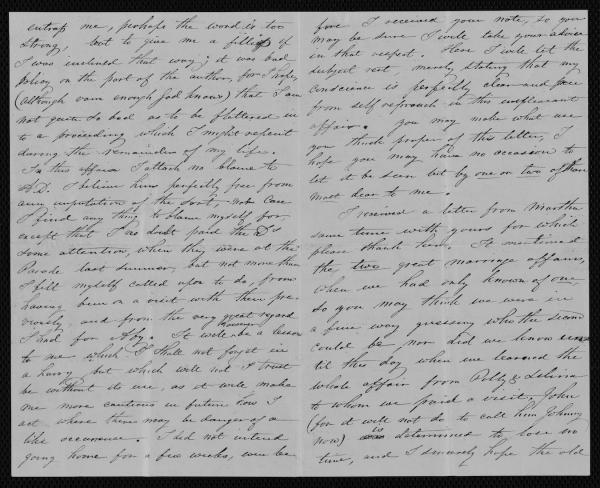 entrap me, perhaps the word is too
strong, but to give me a fillip if
I was inclined that way; it was bad
policy on the part of the author, for I hope
(although vain enough God knows) that I am
not quite so bad as to be flattered in
to a proceeding which I might repent
during the remainder of my life.
In this affair I attach no blame to
A.D. I believe him perfectly free from
any imputation of the sort, nor can
I find any thing to blame myself for,
except that I no doubt paid the D's
some attention, when they were at the
Parade last summer, but not more than
I felt myself called upon to do, from
having been on a visit with them pre
viously, and from the very great regard
I had for Aby. It will however be a lesson
to me which I shall not forget in
a hurry but which will not I trust
be without its use, as it will make
me more cautious in future how I
act where there may be danger of a
like occurrence. I did not intend
going home for a few weeks, even be
fore I received your note, so you
may be sure I will take your advice
in that respect. Here I will let the
subject rest, merely stating that my
conscience is perfectly clear and free
from self reproach in this unpleasant
affair. you may make what use
you think proper of this letter, I
hope you may have no occasion to
let it be seen but by one or two of those
most dear to me.
I received a letter from Martha
same time with yours for which
please thank them. It mentioned
the two great marriage affairs,
when we had only known of one,
so you may think we were in
a fine way guessing who the second
could be nor did we know
til this day when we learned the
whole affair from Polly &
to whom we paid a visit. John
(for it will not do to call him Johnny
now) is determined to lose no
time, and I sincerely hope the old